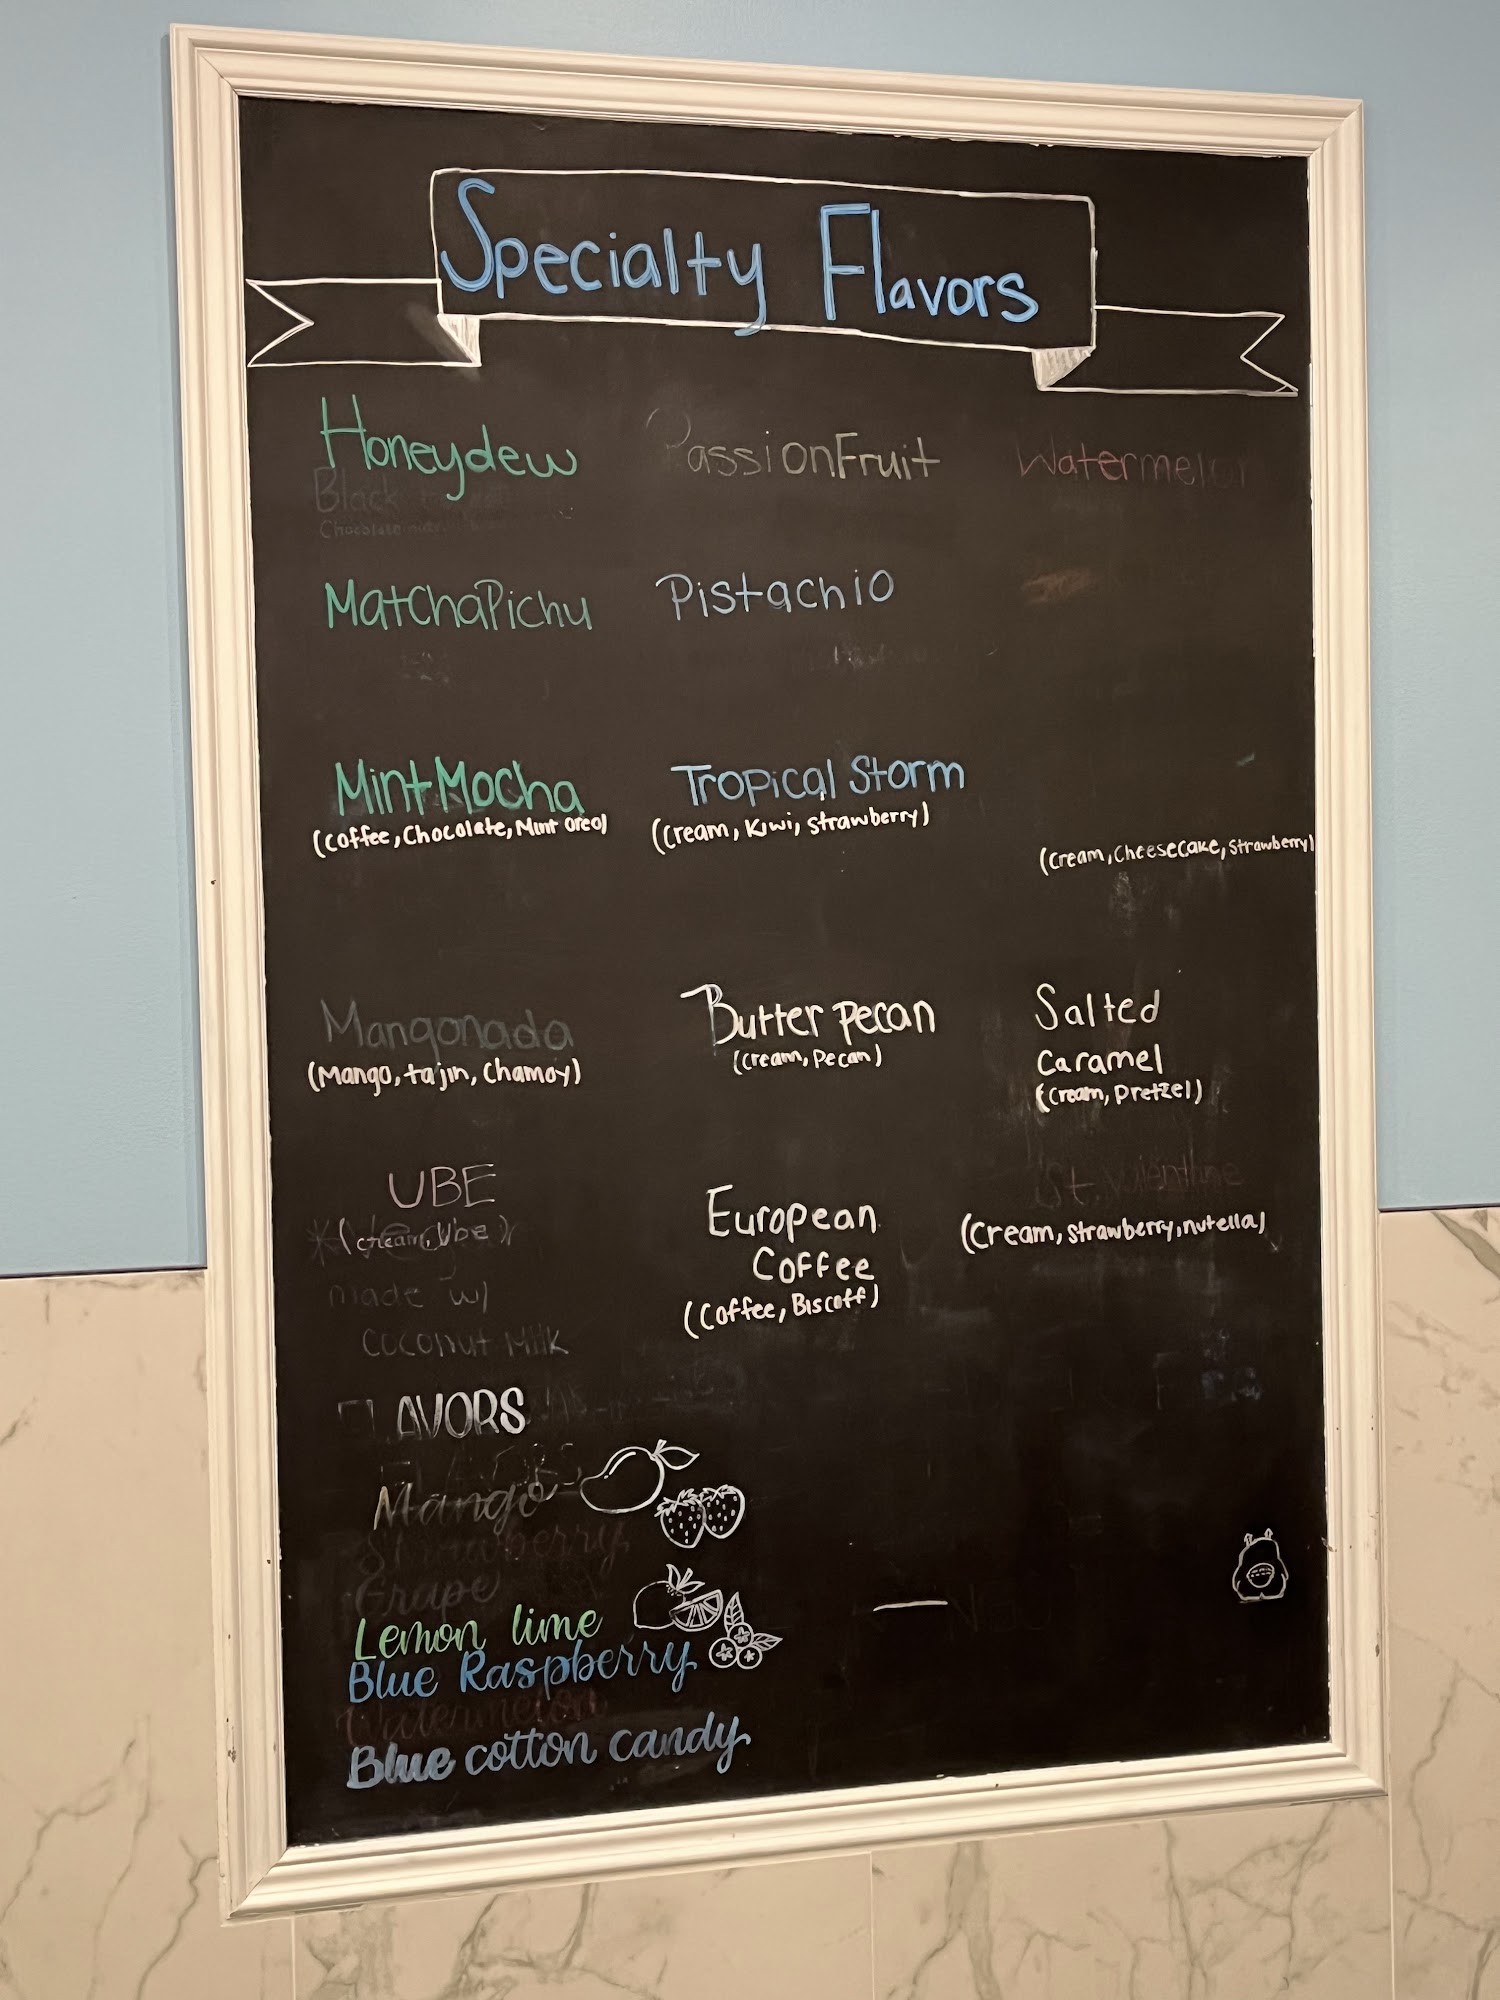 Specialty Flavors
Honeydew
PassionFruit
Watermelon
Black
MatchaPichu
Pistachio
MintMocha
(Coffee, Chocolate, Mint oreo)
Tropical Storm
(Cream, Kiwi, Strawberry)
(Cream, Cheesecake, Strawberry)
Mangonada
(Mango, tajin, Chamoy)
Butter pecan
(Cream, Pecan)
Salted
Caramel
(Cream, Pretzel)
UBE
*(cream, Ube)*
made w/
coconut Milk
European
Coffee
(Coffee, Biscoff)
St. Valentine
(Cream, Strawberry, nutella)
FLAVORS
Mango
Strawberry
Grape
Lemon lime
Blue Raspberry
Watermelon
Blue cotton candy